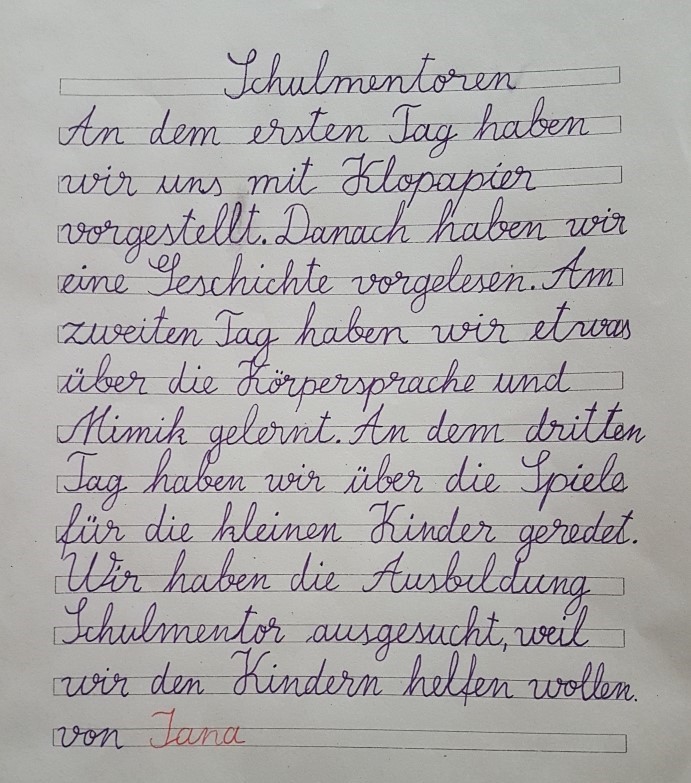 Schulmentoren
An dem ersten Tag haben
wir uns mit Klopapier
vorgestellt. Danach haben wir
eine Geschichte vorgelesen. Am
zweiten Tag haben wir etwas
über die Körpersprache und
Mimik gelernt. An dem dritten
Tag haben wir über die Spiele
für die kleinen Kinder geredet.
Wir haben die Ausbildung
Schulmentor ausgesucht, weil
wir den Kindern helfen wollen.
von Jana